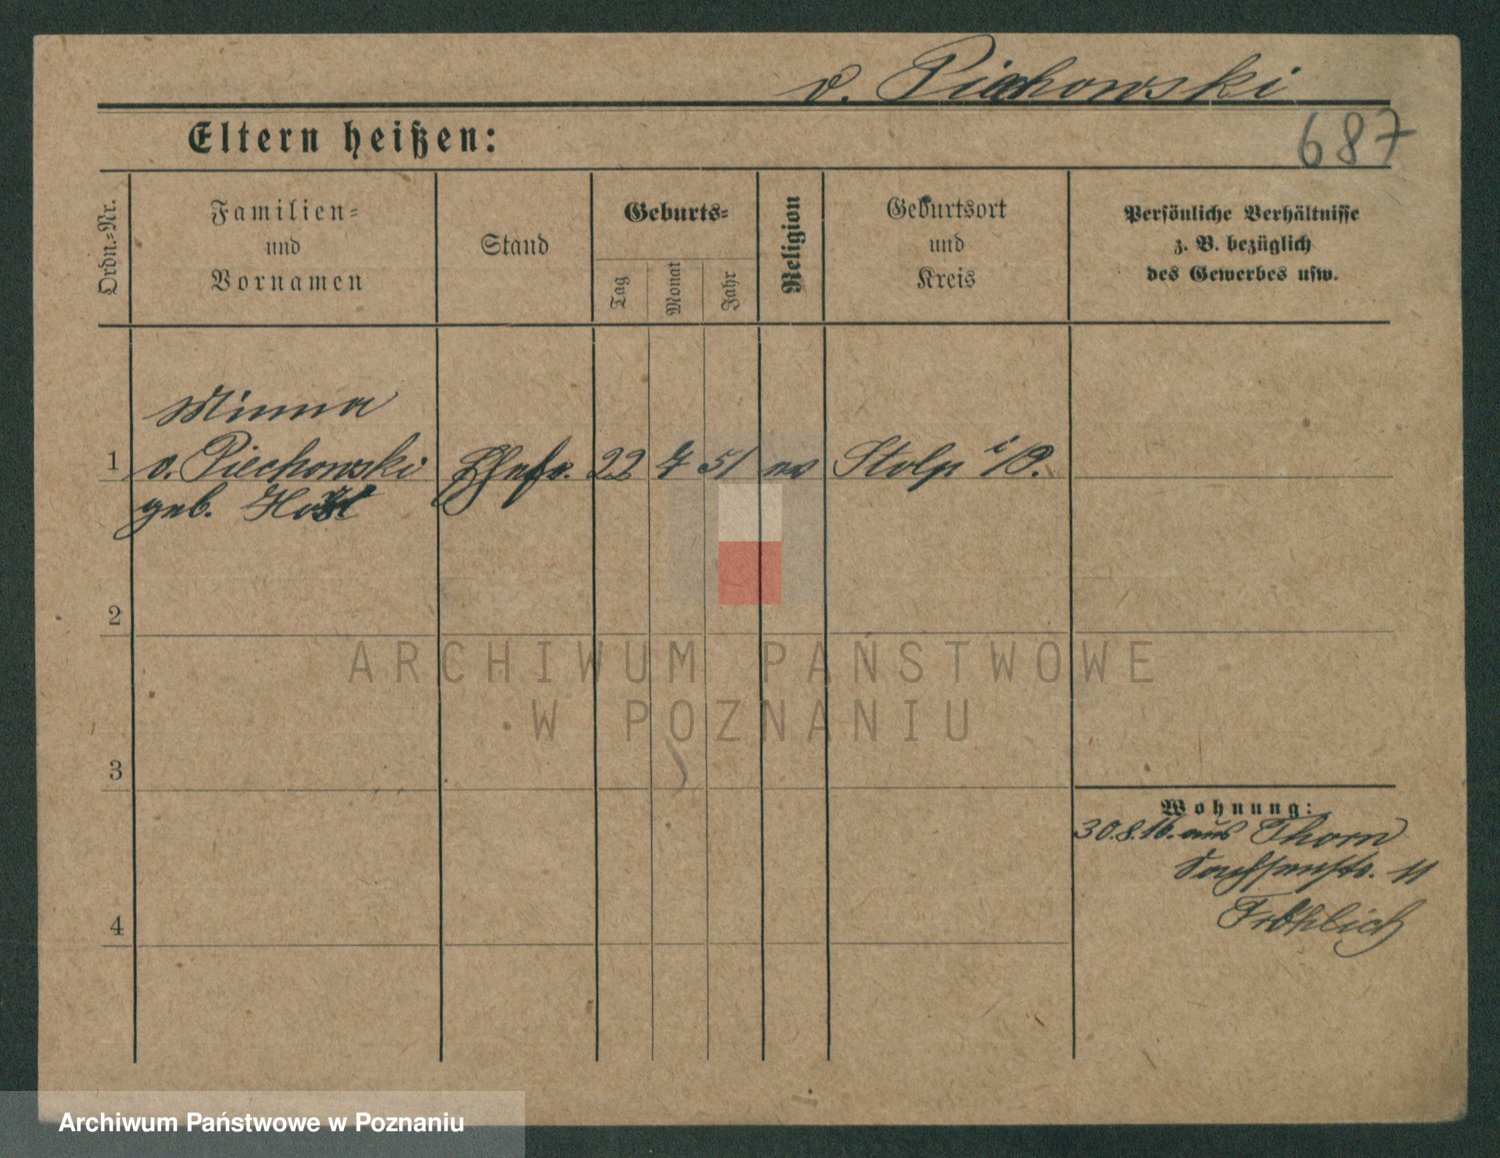 v. Piechowski
Eltern heißen:
687
Ordn.-Nr.
Familien-
und
Vornamen
Stand
Geburts-
Tag
Monat
Jahr
Religion
Geburtsort
und
Kreis
Persönliche Verhältnisse
z. B. bezüglich
des Gewerbes usw.
Minna
1 v. Piechowski Ehefr. 22 7 51 ev Stolp i/P.
geb.
2
ARCHIWUM PAŃSTWOWE
W POZNANIU
3
Wohnung:
30.8.16. aus Thorn
Sachsenstr. 11
Fröhlich
4
Archiwum Państwowe w Poznaniu